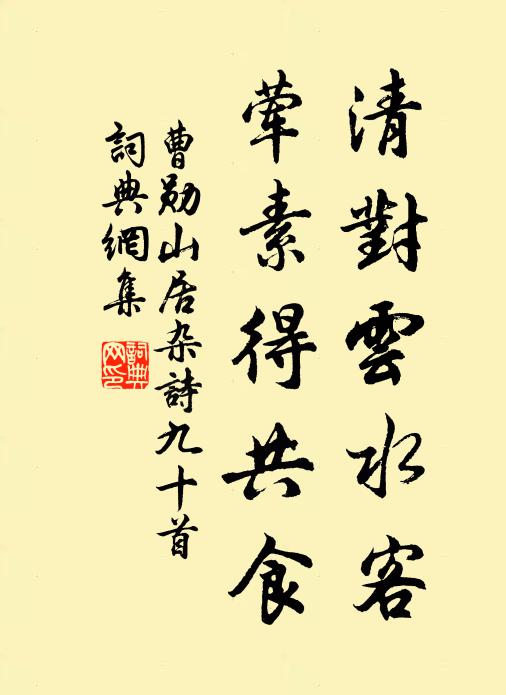 清對雲水客
荤素得共食
曹勛山居杂詩九十首
詞典網集
詞典网印